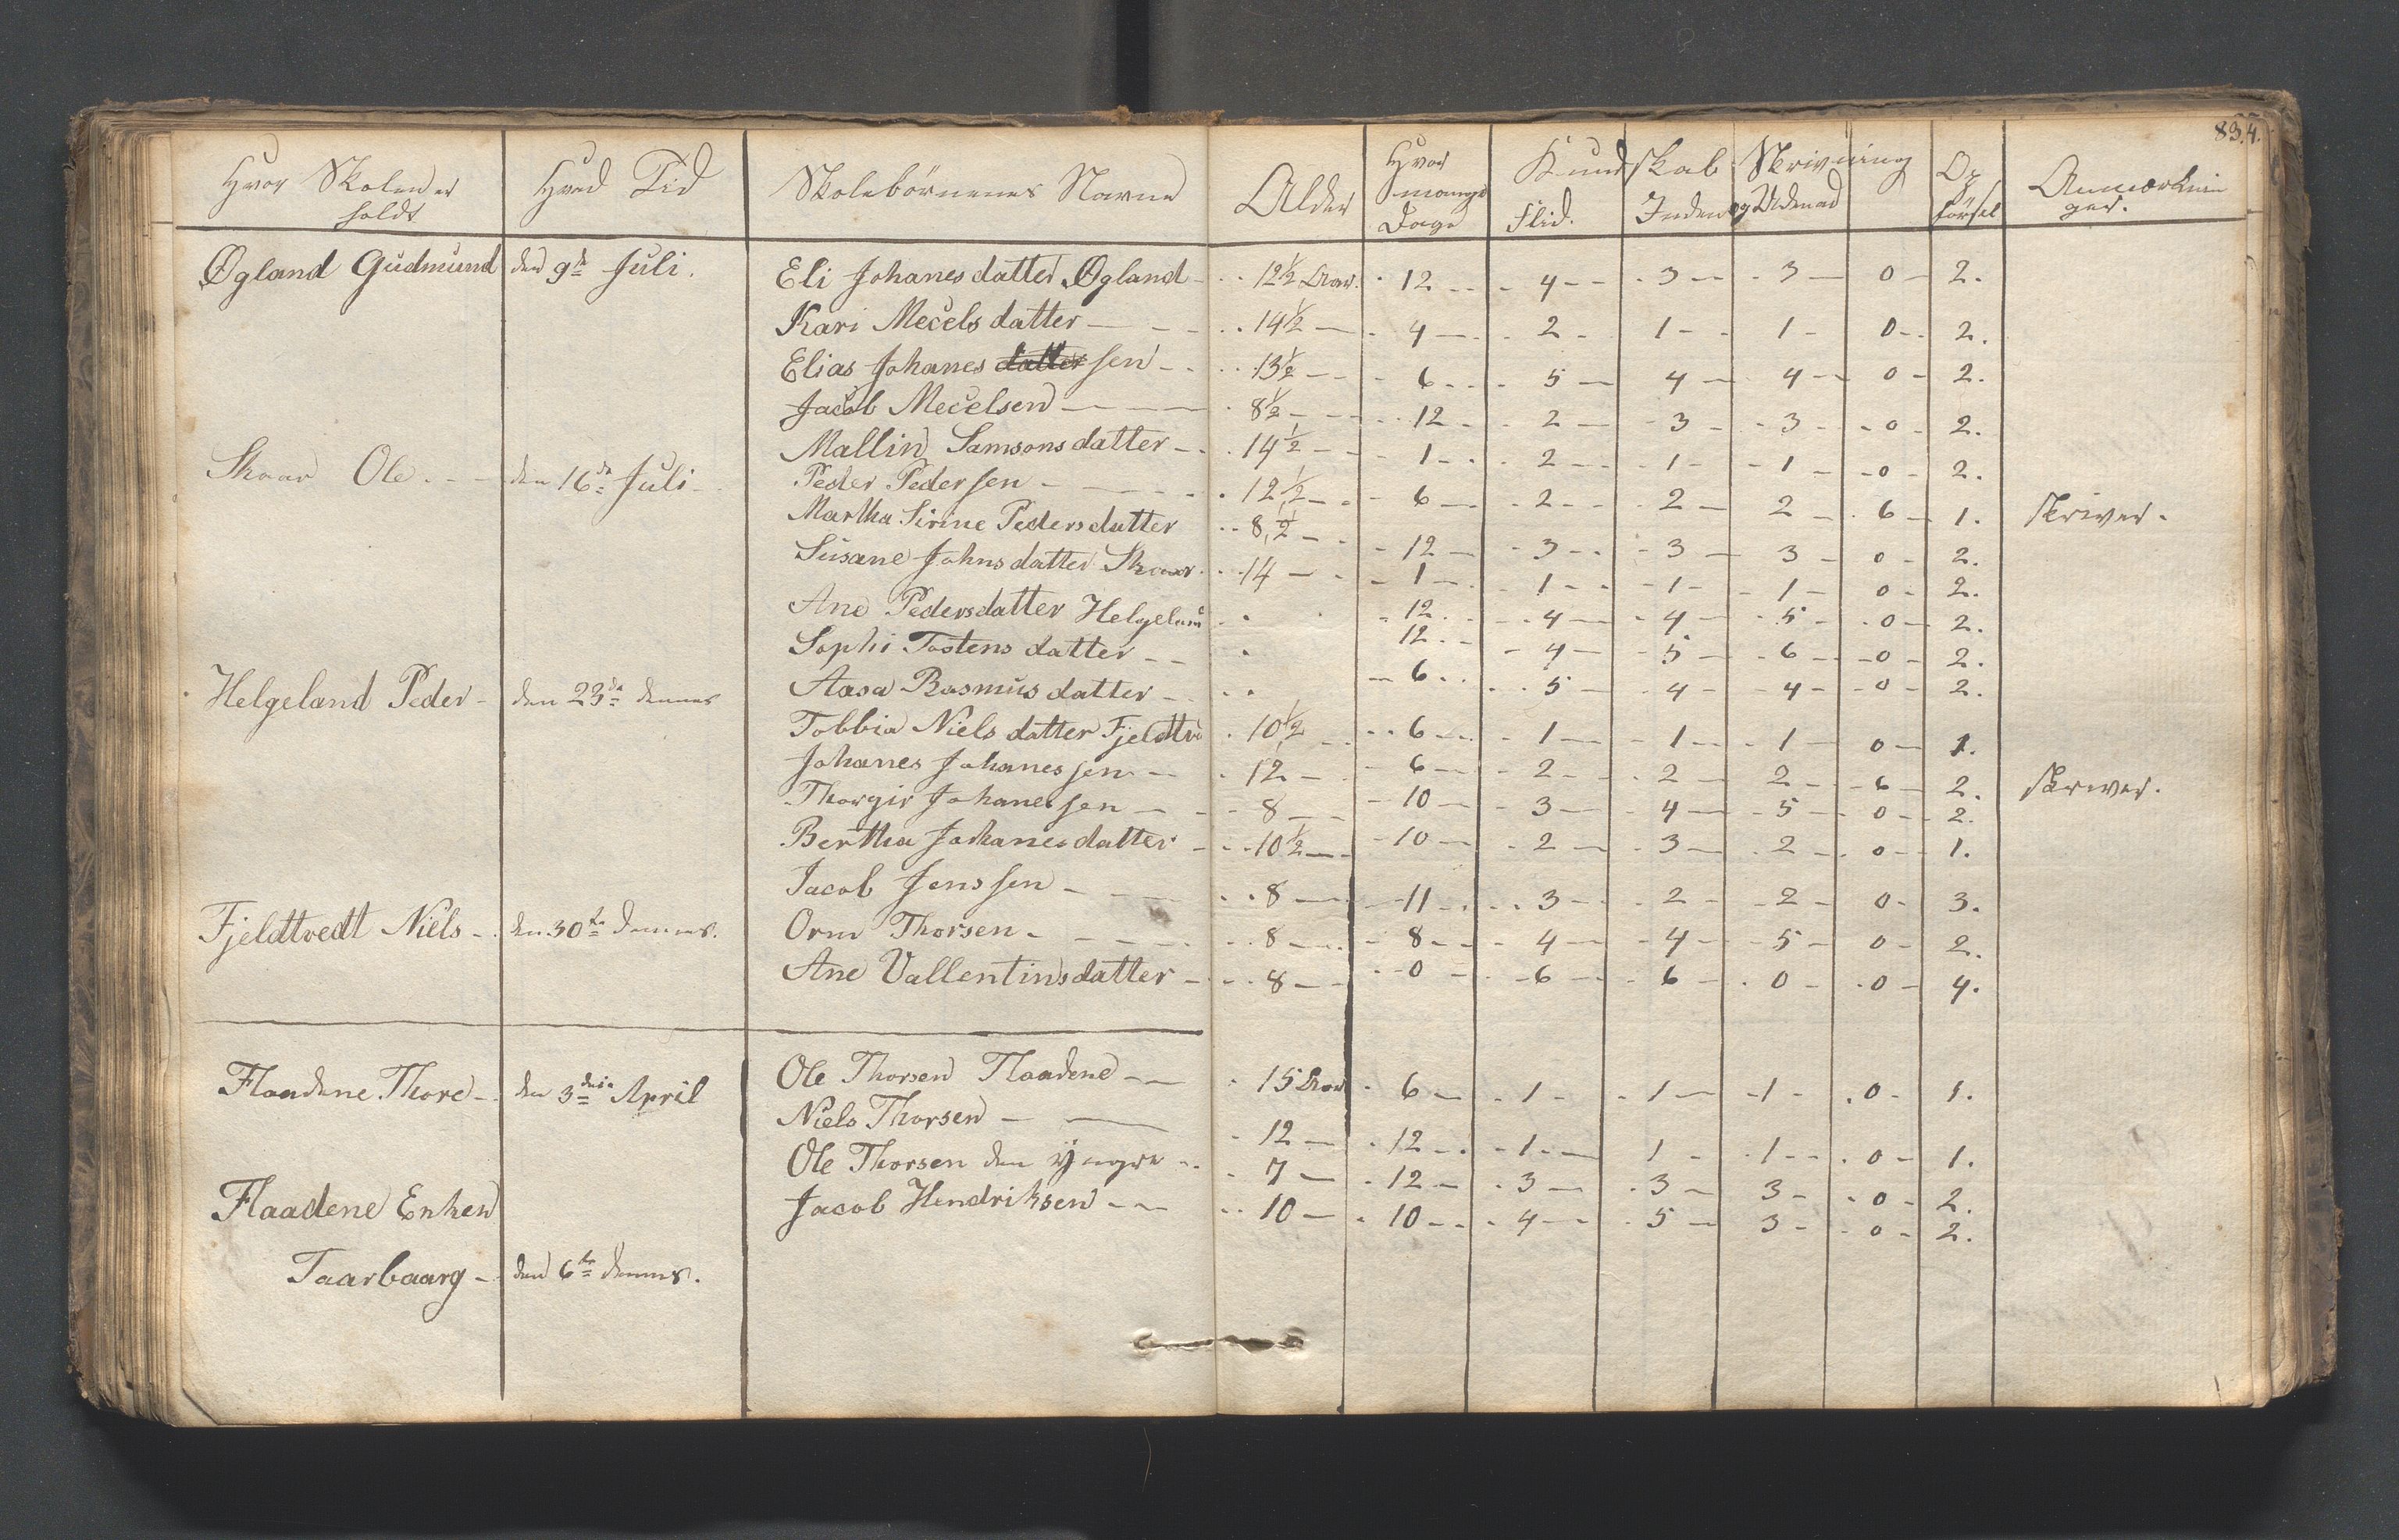 834.
Hvor Skolen er holdt | Hvad Tid | Skolebörnenes Navne | Alder | Hvor mange Dage | Kundskab Flid. | Inden og Udenad | Skrivning | Opförsel | Anmærkninger.
Øgland Gudmund | den 9de Juli. | Eli Johanesdatter Øgland | 12 1/2 Aar. | 12 | 4 | 3 | 3 | 0 | 2.
Kari Mecelsdatter | 14 1/2 | 4 | 2 | 1 | 1 | 0 | 2.
Elias Johanes datter sen | 13 1/2 | 6 | 5 | 4 | 4 | 0 | 2.
Jacob Mecelsen | 8 1/2 | 12 | 2 | 3 | 3 | 0 | 2.
Mallin Samsonsdatter | 14 1/2 | 1 | 2 | 1 | 1 | 0 | 2.
Skaar Ole | den 16de Juli | Peder Pedersen | 12 1/2 | 6 | 2 | 2 | 2 | 6 | 1. | skriver.
Martha Sirine Pedersdatter | 8 1/2 | 12 | 3 | 3 | 3 | 0 | 2.
Susane Johnsdatter Skaar | 14 | 1 | 1 | 1 | 1 | 0 | 2.
Ane Pedersdatter Helgelan | 12 | 4 | 4 | 5 | 0 | 2.
Sophi Tostensdatter | 12 | 4 | 5 | 6 | 0 | 2.
Helgeland Peder | den 23de dennes | Aasa Rasmusdatter | 6 | 5 | 4 | 4 | 0 | 2.
Tobbia Nielsdatter Fjeldtve | 10 1/2 | 6 | 1 | 1 | 1 | 0 | 1.
Johanes Johanessen | 12 | 6 | 2 | 2 | 2 | 6 | 2. | skriver.
Thorgir Johanessen | 8 | 10 | 3 | 4 | 5 | 0 | 2.
Bertha Johanesdatter | 10 1/2 | 10 | 2 | 3 | 2 | 0 | 1.
Jacob Jenssen | 8 | 11 | 3 | 2 | 2 | 0 | 3.
Fjeldtvedt Niels | den 30te dennes. | Orm Thorsen | 8 | 8 | 4 | 4 | 5 | 0 | 2.
Ane Vallentinsdatter | 8 | 0 | 6 | 6 | 0 | 0 | 4.
Flaadene Thore | den 3die April | Ole Thorsen Flaadene | 15 Aar | 6 | 1 | 1 | 1 | 0 | 1.
Niels Thorsen | 12 | 12 | 1 | 1 | 1 | 0 | 1.
Ole Thorsen den yngre | 7 | 12 | 3 | 3 | 3 | 0 | 2.
Flaadene Enken | Jacob Hendriksen | 10 | 10 | 4 | 5 | 3 | 0 | 2.
Taarbaarg | den 6te dennes.